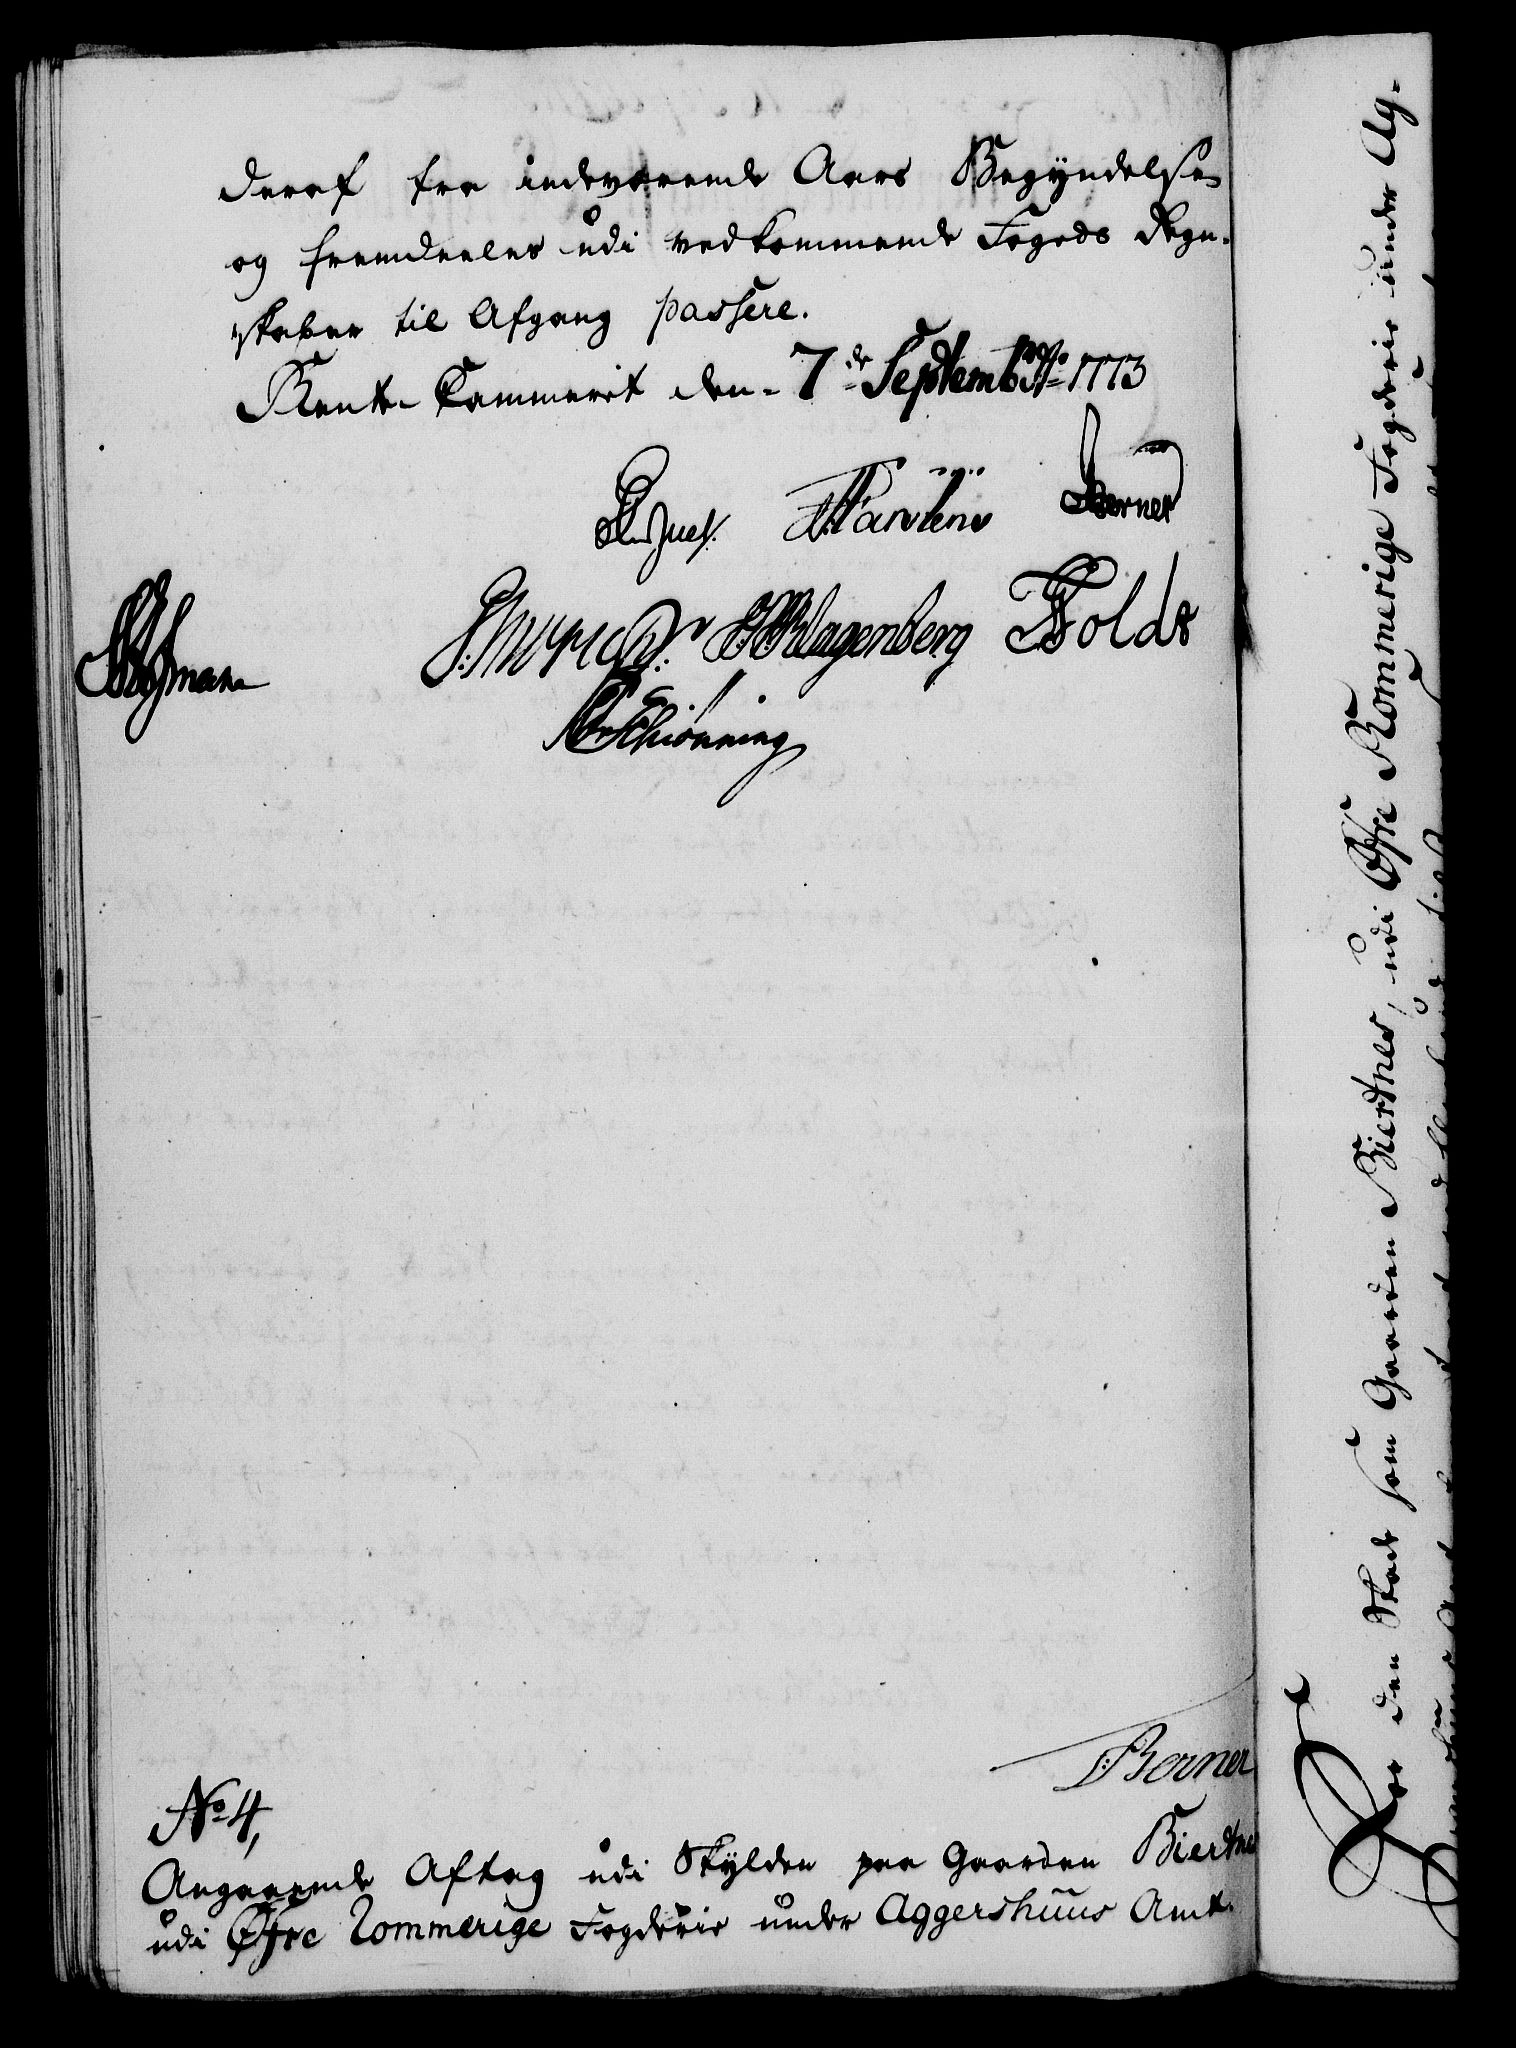 deraf fra indeværende Aars Begyndelse
og fremdeeles udi vedkommende Fogeds Regn-
skaber til Afgang passere.
Rente-Kammeret den 7de Septemb. Ao 1773
Juel. Berner
Klagenberg Holck
Schiønning
Berner
No 4,
Angaaende Aftag udi Skylden paa Gaarden Biertnes
udi Øfre Rommerige Fogderie under Aggershuus Amt.
For den Skade som Gaarden Biertnes, udi Øfre Rommerige Fogderie under Ag-